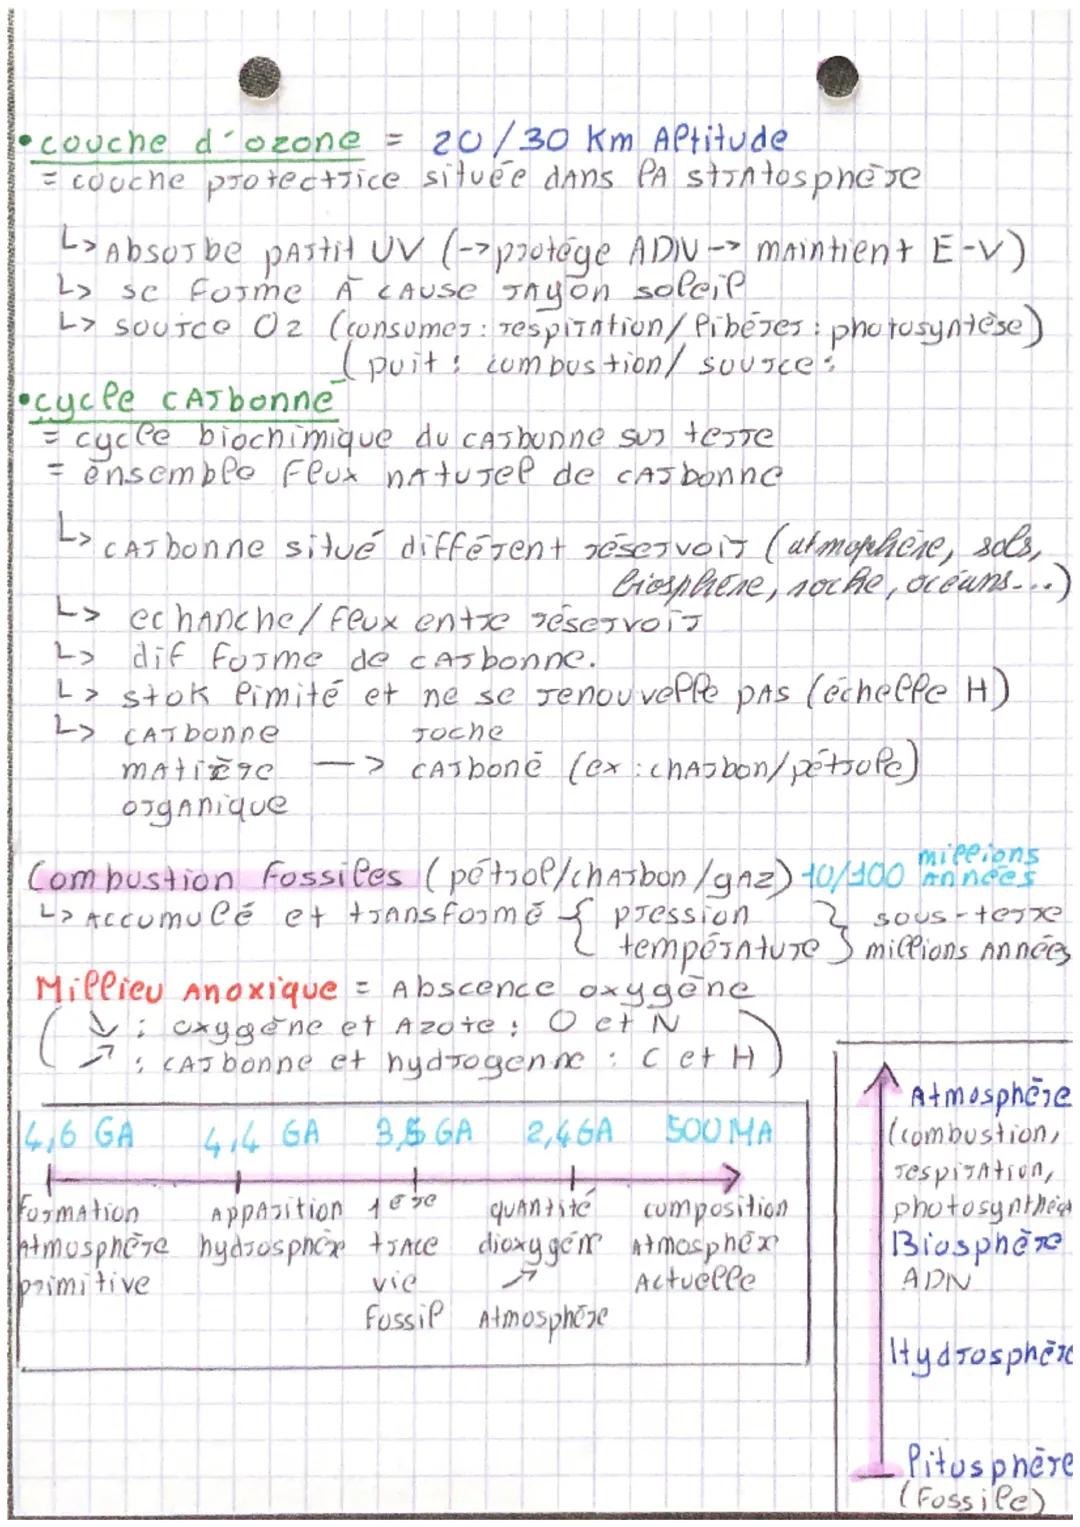 •couche d'ozone = 20/30 Km Altitude
= couche protectrice située dans la stratosphère
↳ Absorbe partit UV (->protége ADN -> maintient E-V)
↳ se forme à cause rayon soleil
↳ source O2 (consumer : respiration/libérer : photosyntèse)
(puit : combustion/ source :
•cycle carbonne
= cycle biochimique du carbonne sur terre
= ensemble flux naturel de carbonne
↳ carbonne situé différent réservoir (atmophère, sols,
biosphère, roche, océans...)
↳ echanche/flux entre réservoir
↳ dif forme de carbonne.
↳ stok limité et ne se renouvelle pas (échelle H)
↳ carbonne roche
matière —> carboné (ex : charbon/pétrole)
organique
Combustion fossiles (pétrol/charbon/gaz) 10/100 millions années
↳ Accumulé et transformé { pression } sous-terre
{ température } millions années
Millieu Anoxique = Abscence oxygène
( ↘ : oxygène et Azote : O et N )
( ↗ : carbonne et hydrogenne : C et H )
4,6 GA 4,4 GA 3,5 GA 2,4 GA 500 MA
formation apparition 1ère quantité composition
Atmosphère hydrosphère trace dioxygène Atmosphère
primitive vie ↗ Actuelle
fossil Atmosphère
Atmosphère
(combustion,
respiration,
photosynthèse
Biosphère
ADN
Hydrosphère
Litosphère
(Fossile)